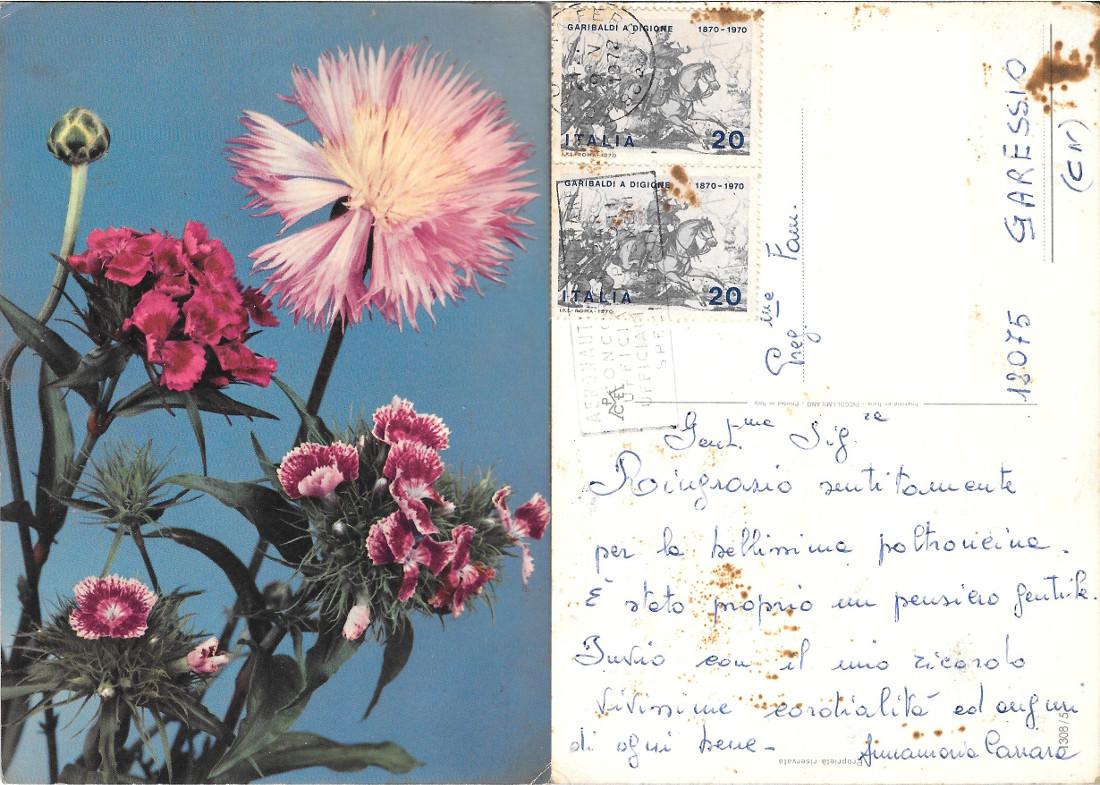 GARIBALDI A DIGIONE 1870-1970
ITALIA 20
I.P.S.-ROMA-1970
GARIBALDI A DIGIONE 1870-1970
ITALIA 20
I.P.S.-ROMA-1970
1972
AERONAUT
UFFICI
UFFICIALI
SPE
Preg.me Fam.
12075 GARESSIO
(CN)
Printed in Italy
Gent.me Sig.re
Ringrazio sentitamente
per la bellissima poltroncina.
È stato proprio un pensiero gentile.
Invio con il mio ricordo
vivissime cordialità ed auguri
di ogni bene - Annamaria Carrara
Proprietà riservata
1308/5